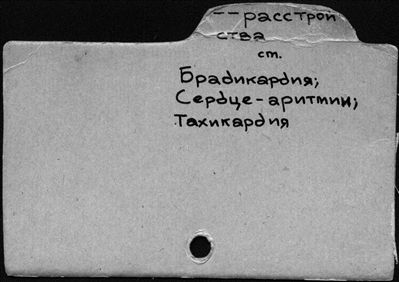 --расстрой
ства
ст.
Брадикардия;
Сердце-аритмии;
Тахикардия